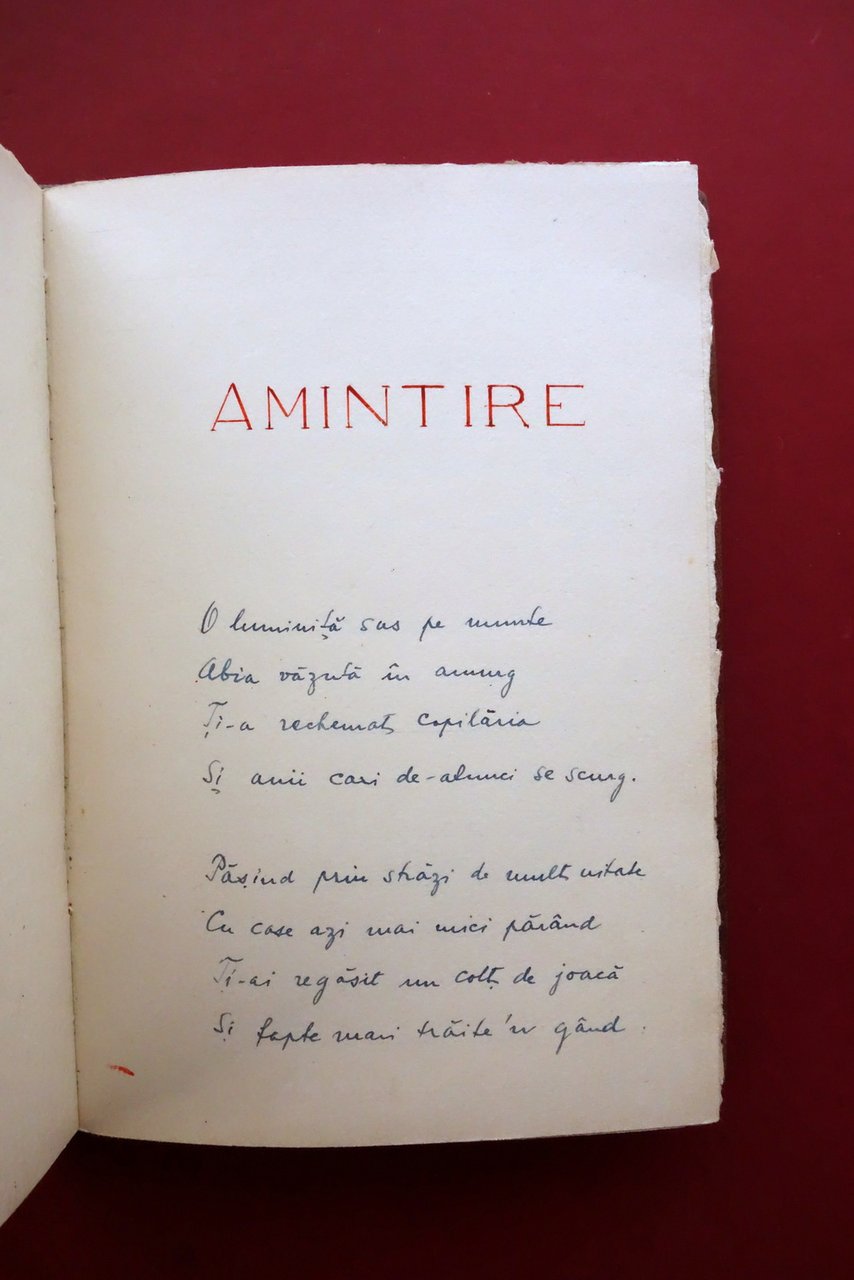 AMINTIRE
O luminiță sus pe munte
Abia văzută în amurg
Ți-a rechemat copilăria
Și anii cari de-atunci se scurg.
Pășind prin străzi de mult uitate
Cu case azi mai mici părând
Ți-ai regăsit un colț de joacă
Și fapte mari trăite'n gând.